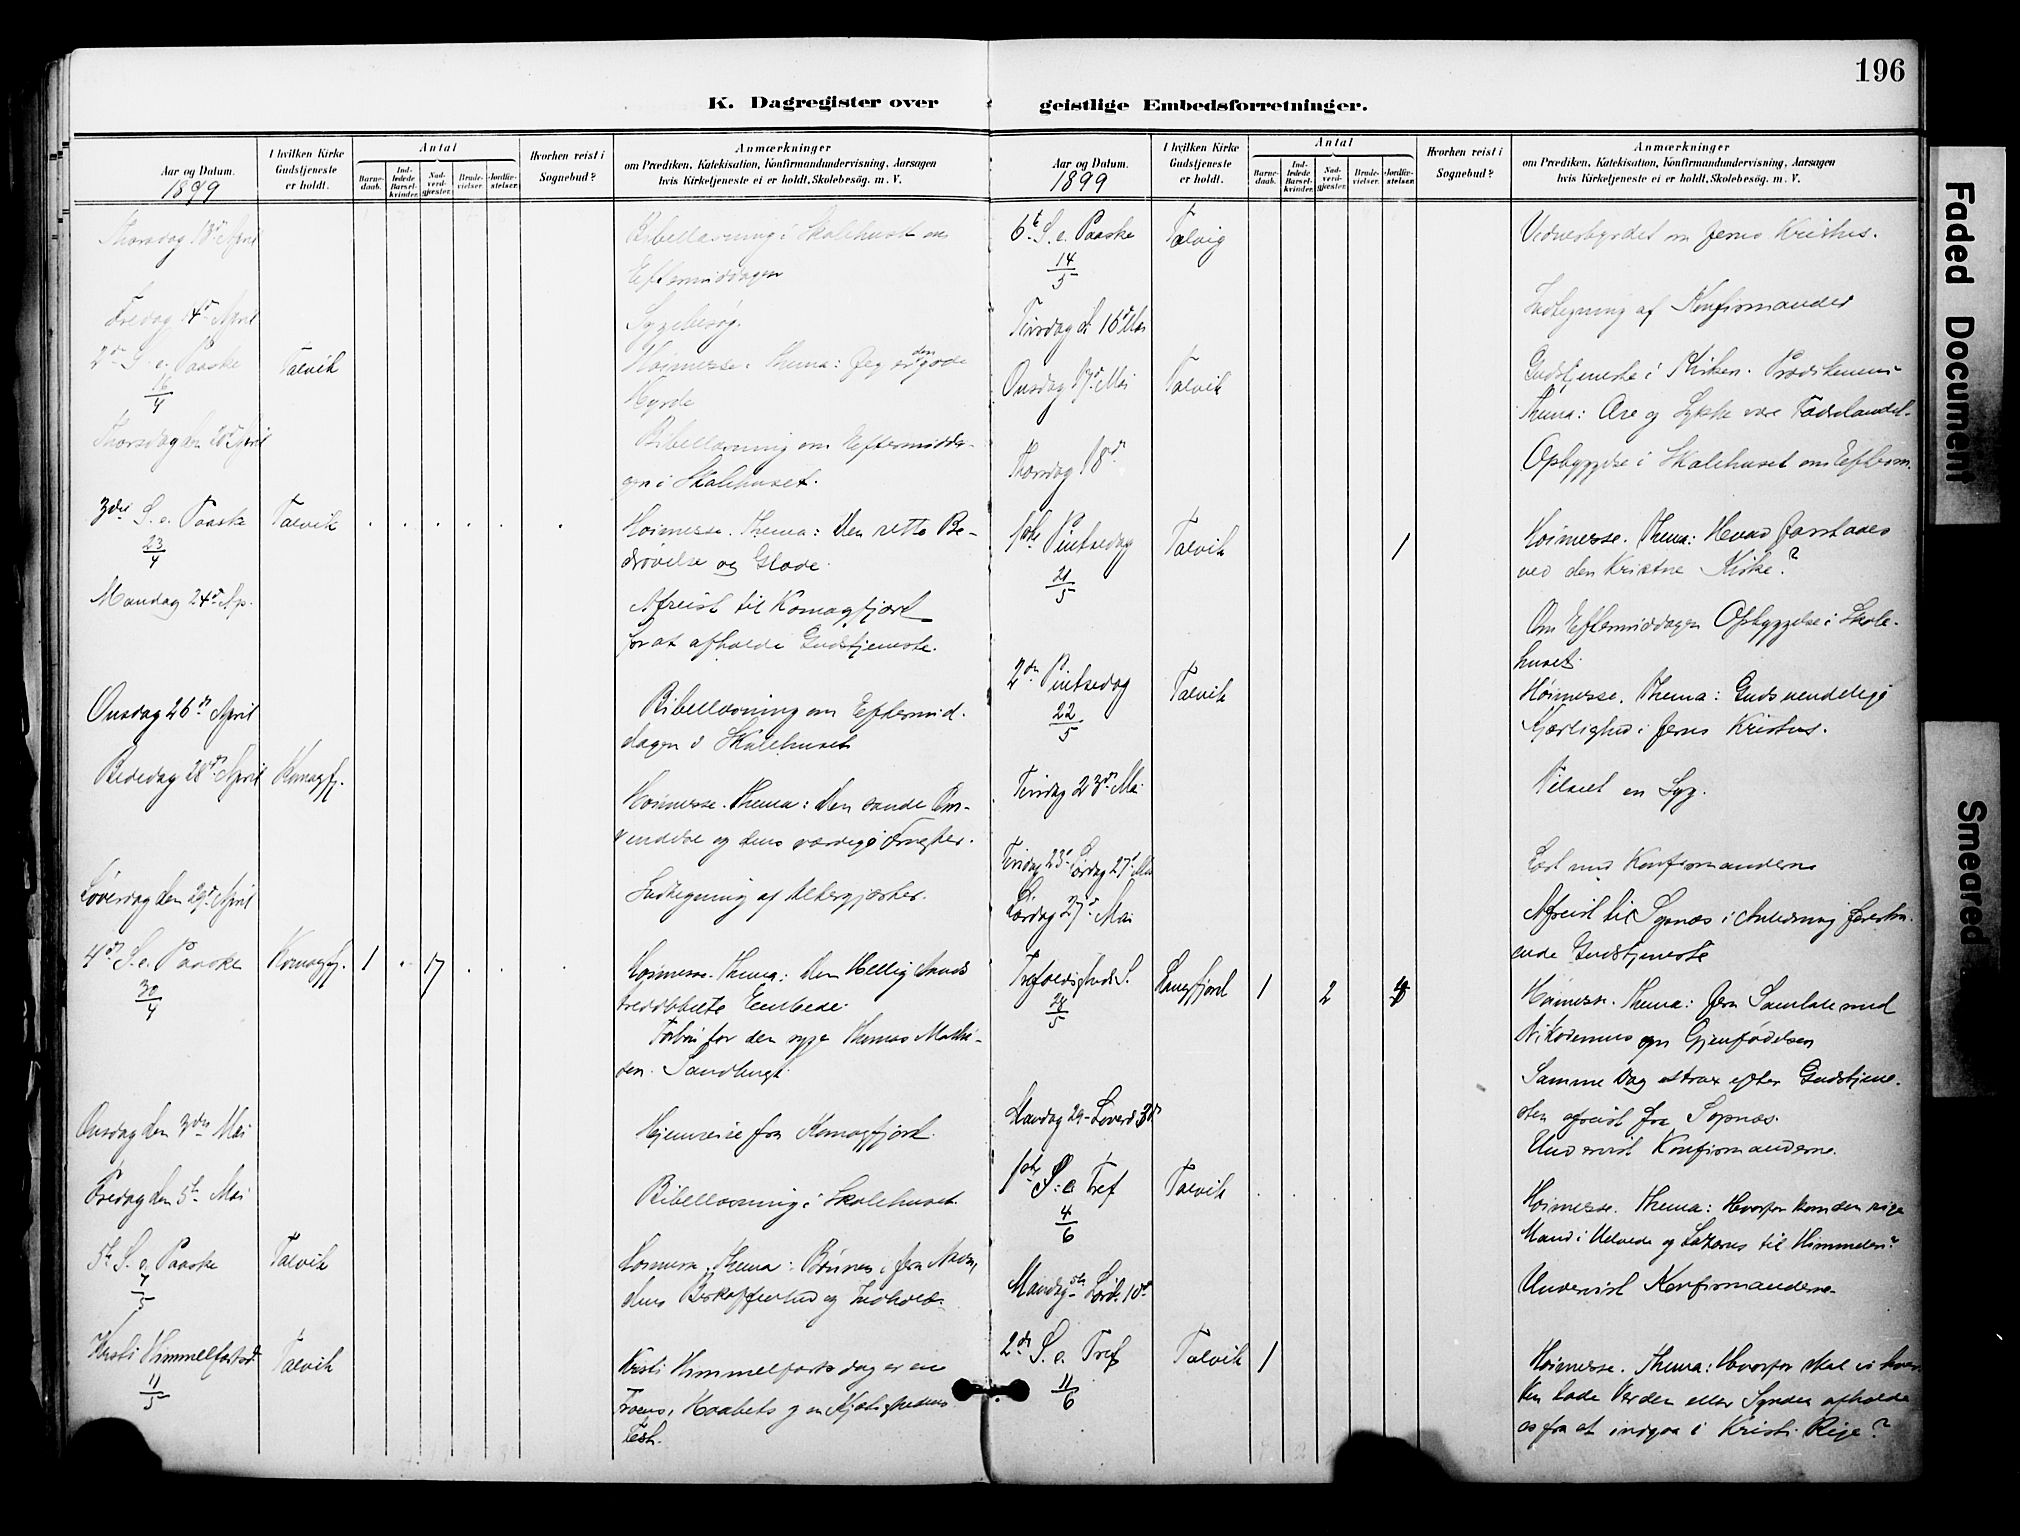 196
K. Dagregister over geistlige Embedsforretninger.
Aar og Datum.
1899
I hvilken Kirke Gudstjeneste er holdt.
Antal
Barnedaab.
Indledede Barselkvinder.
Nadverdgjester.
Brudevielser.
Jordfæstelser.
Hvorhen reist i Sognebud?
Anmærkninger
om Prædiken, Katekisation, Konfirmandundervisning, Aarsagen
hvis Kirketjeneste ei er holdt, Skolebesøg. m. V.
Thorsdag 13de April
Bibellæsning i Skolehuset om
Eftermiddagen
Fredag 14de April
Sygebesøg.
2den S. e. Paaske Talvik
16/4
Høimesse. Thema: Jeg er den gode
Hyrde
Thorsdag den 20de April
Bibellæsning om Eftermidda-
gen i Skolehuset.
3die S. e. Paaske Talvik
23/4
Høimesse. Thema: Den rette Be-
drøvelse og Glæde.
Mandag 24de Ap.
Afreist til Komagfjord
for at afholde Gudstjeneste.
Onsdag 26de April
Bibellæsning om Eftermid-
dagen i Skolehuset
Bededag 28de April Komagfj.
Høimesse. Thema: Den sande Om-
vendelse og dens værdige Frugter.
Løverdag den 29de April
Indtegning af Altergjæster.
4de S. e. Paaske Komagfj. 1 17
30/4
Høimesse. Thema: Den Hellig Aands
treddobbelte Embede.
Forbøn for den syge Thomas Mathi-
sen. Sandbugt.
Onsdag den 3die Mai
Hjemreise fra Komagfjord.
Fredag den 5te Mai
Bibellæsning i Skolehuset.
5te S. e. Paaske Talvik
7/5
Høimesse. Thema: Bønnen i Jesu Navn,
dens Beskaffenhed og Indhold.
Kristi Himmelfartsd. Talvik
11/5
Kristi Himmelfartsdag er en
Troens, Haabets og en Kjærlighedens
Fest.
Aar og Datum.
1899
I hvilken Kirke Gudstjeneste er holdt.
Antal
Barnedaab.
Indledede Barselkvinder.
Nadverdgjester.
Brudevielser.
Jordfæstelser.
Hvorhen reist i Sognebud?
Anmærkninger
om Prædiken, Katekisation, Konfirmandundervisning, Aarsagen
hvis Kirketjeneste ei er holdt, Skolebesøg. m. V.
6te S. e. Paaske Talvig
14/5
Vidnesbyrdet om Jesus Kristus.
Tirsdag d. 16de Mai
Indtegning af Konfirmander
Onsdag 17de Mai Talvik
Gudstjeneste i Kirken. Prædikenens
Thema: Ære og Lykke være Fædrelandet.
Thorsdag 18de
Opbyggelse i Skolehuset om Efterm.
1ste Pintsedag Talvik 1
21/5
Høimesse. Thema: Hvad forstaaes
ved den kristne Kirke?
Om Eftermiddagen Opbyggelse i Skole-
huset.
2den Pintsedag Talvik
22/5
Høimesse. Thema: Guds uendelige
Kjærlighed i Jesus Kristus.
Tirsdag 23de Mai
Tilset en Syg.
Tirsdag 23de Lørdag 27de Mai
Læst med Konfirmanderne
Lørdag 27de Mai
Afreist til Sopnæs i Anledning forestaa-
ende Gudstjeneste
Trefoldigheds S. Langfjord 1 2
28/5
Høimesse. Thema: Jesu Samtale med
Nikodemus om Gjenfødelsen
Samme Dag strax efter Gudstjene-
sten afreist fra Sopnæs.
Mandag 29-Løverd 3de
Undervist Konfirmanderne.
1ste S. e. Tref Talvik
4/6
Høimesse. Thema: Hvorfor kom den rige
Mand i Helvede og Lazarus til Himmelen?
Mandag 5te - Lørd. 10de
Undervist Konfirmanderne.
2den S. e. Tref Talvik 1
11/6
Høimesse. Thema: Hvorfor skal vi hver-
ken lade Verden eller Synden afholde
os fra at indgaa i Kristi Rige?
Faded Document
Smeared